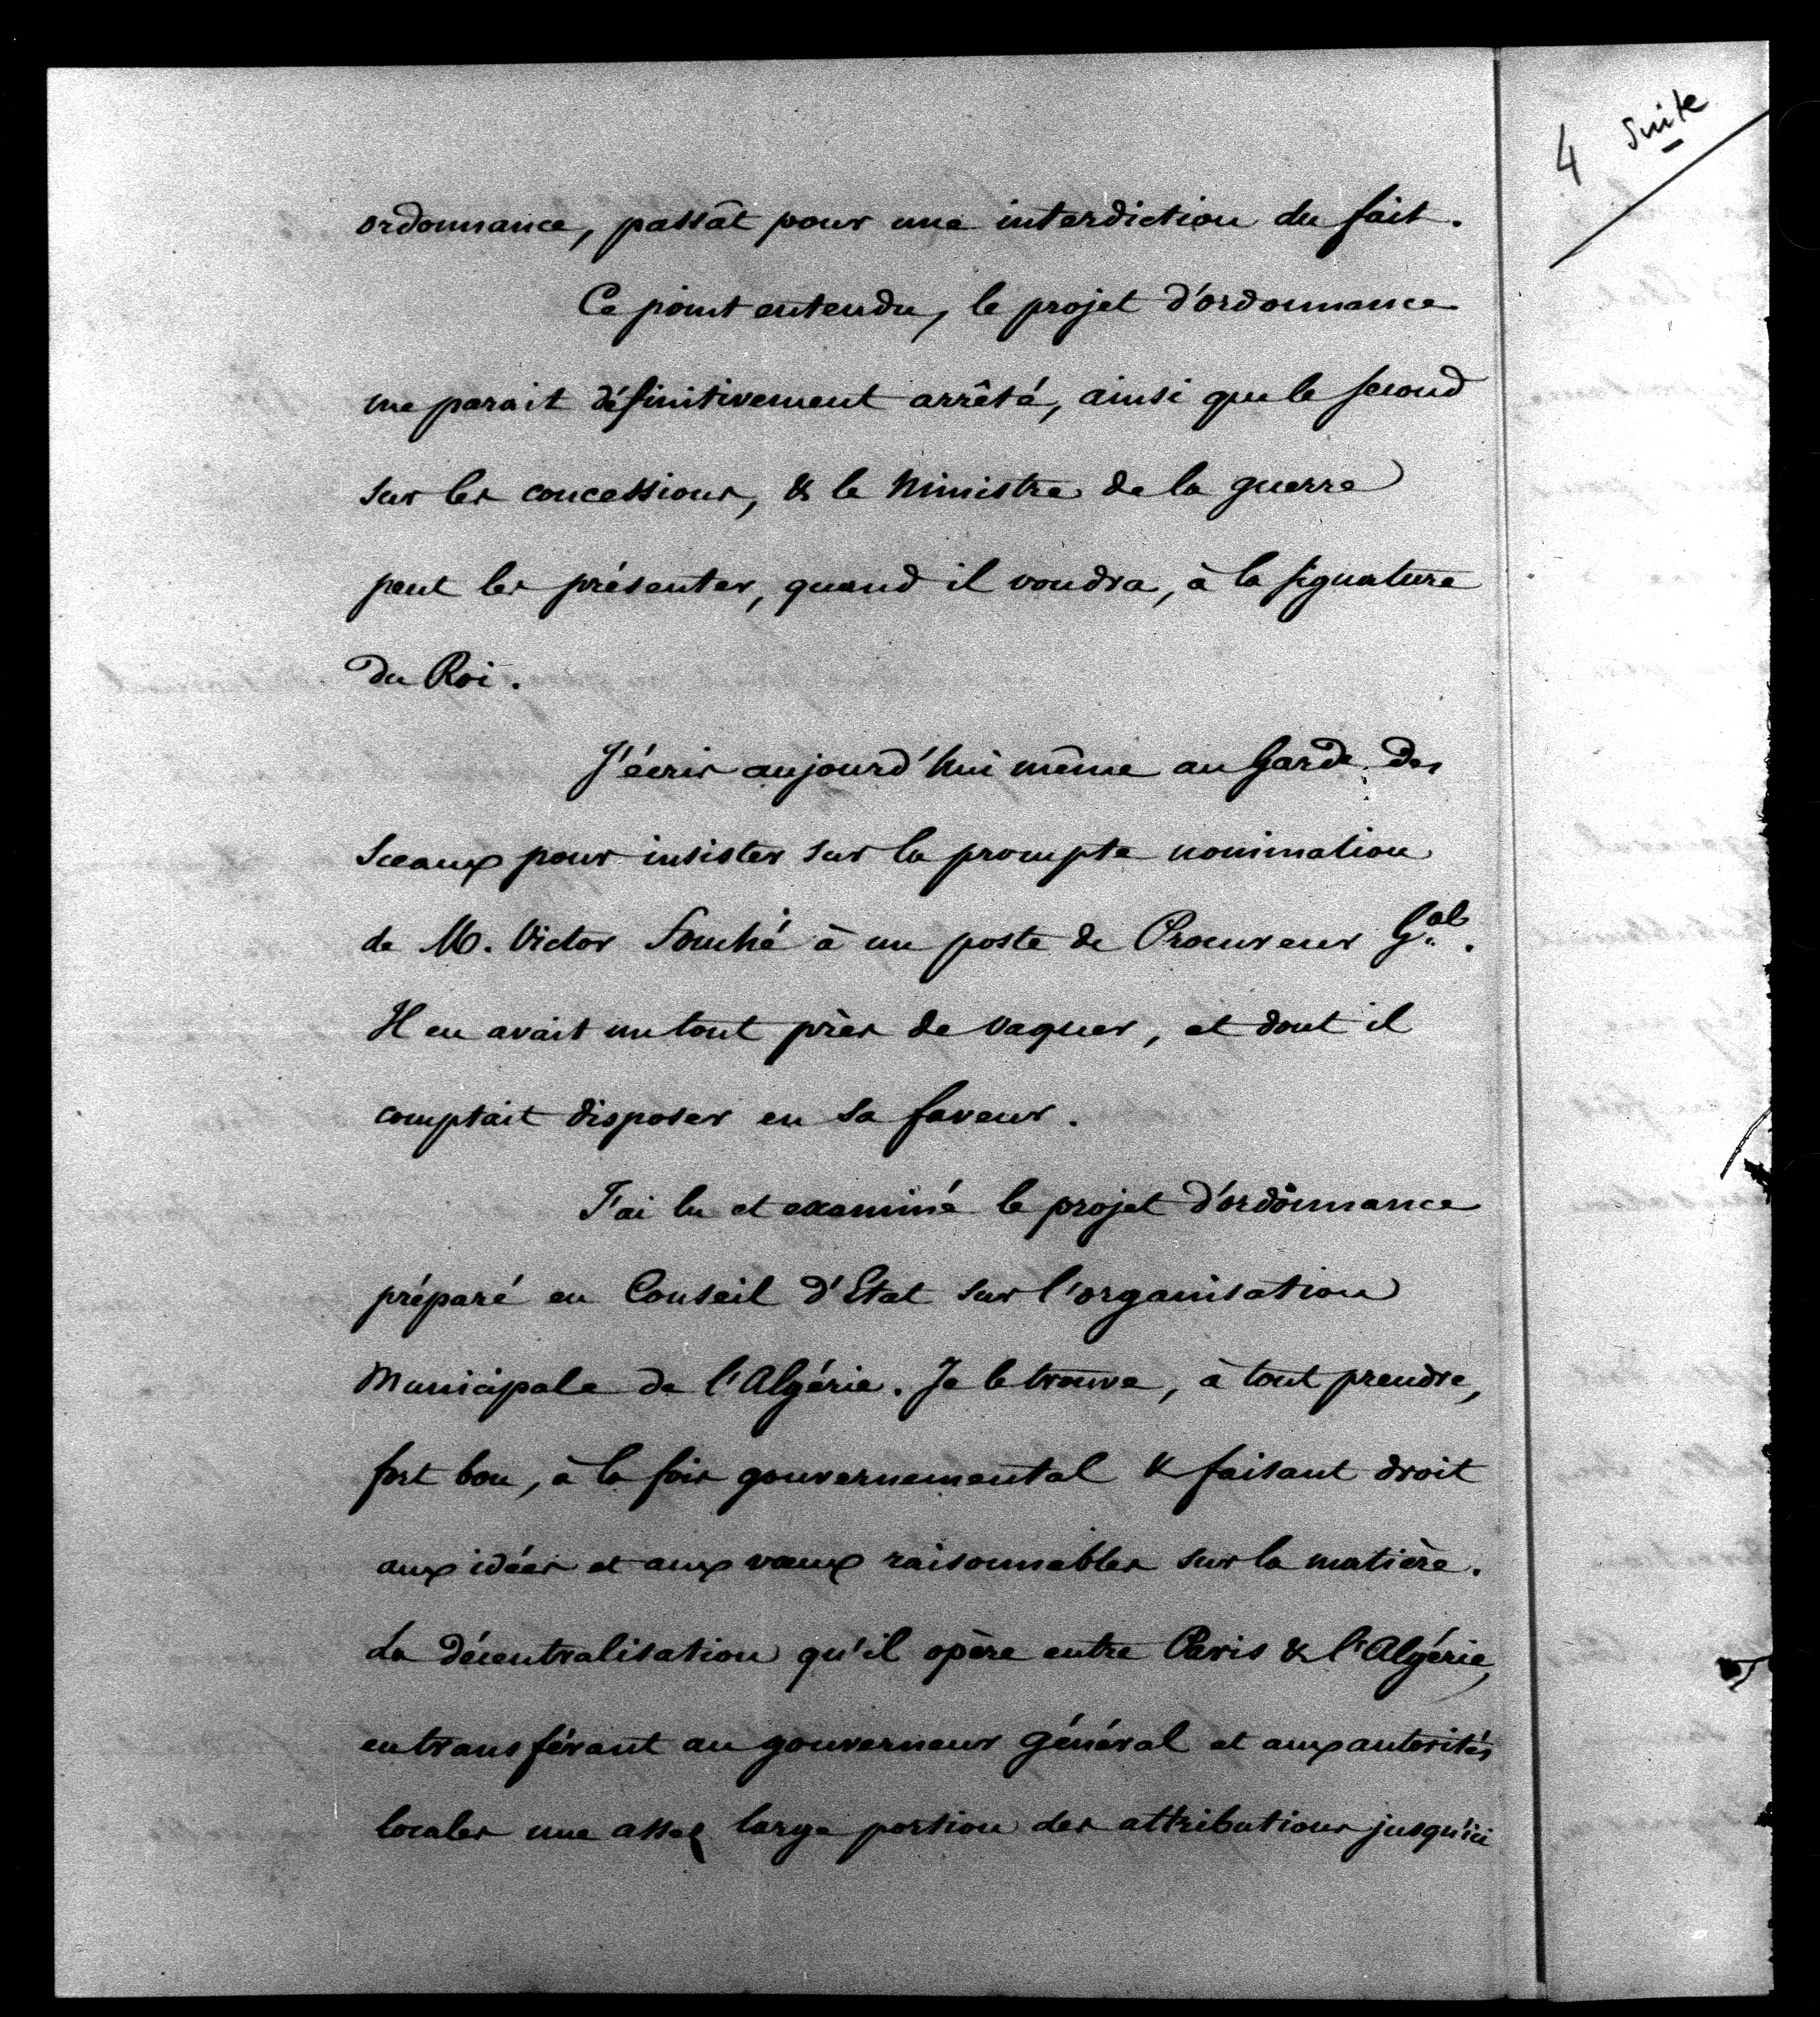 4 suite
ordonnance, passât pour une interdiction du fait.
Ce point entendu, le projet d'ordonnance
me parait définitivement arrêté, ainsi que le second
sur les concessions, & le Ministre de la guerre
peut les présenter, quand il voudra, à la signature
du Roi.
J'écris aujourd'hui même au Garde des
Sceaux pour insister sur la prompte nomination
de M. Victor Fouché à un poste de Procureur Gal.
Il en avait un tout près de vaquer, et dont il
comptait disposer en sa faveur.
J'ai lu et examiné le projet d'ordonnance
préparé en Conseil d'Etat sur l'organisation
Municipale de l'Algérie. Je le trouve, à tout prendre,
fort bon, à la fois gouvernemental & faisant droit
aux idées et aux vœux raisonnables sur la matière.
La décentralisation qu'il opère entre Paris & l'Algérie,
en transférant au gouverneur général et aux autorités
locales une assez large portion des attributions jusqu'ici